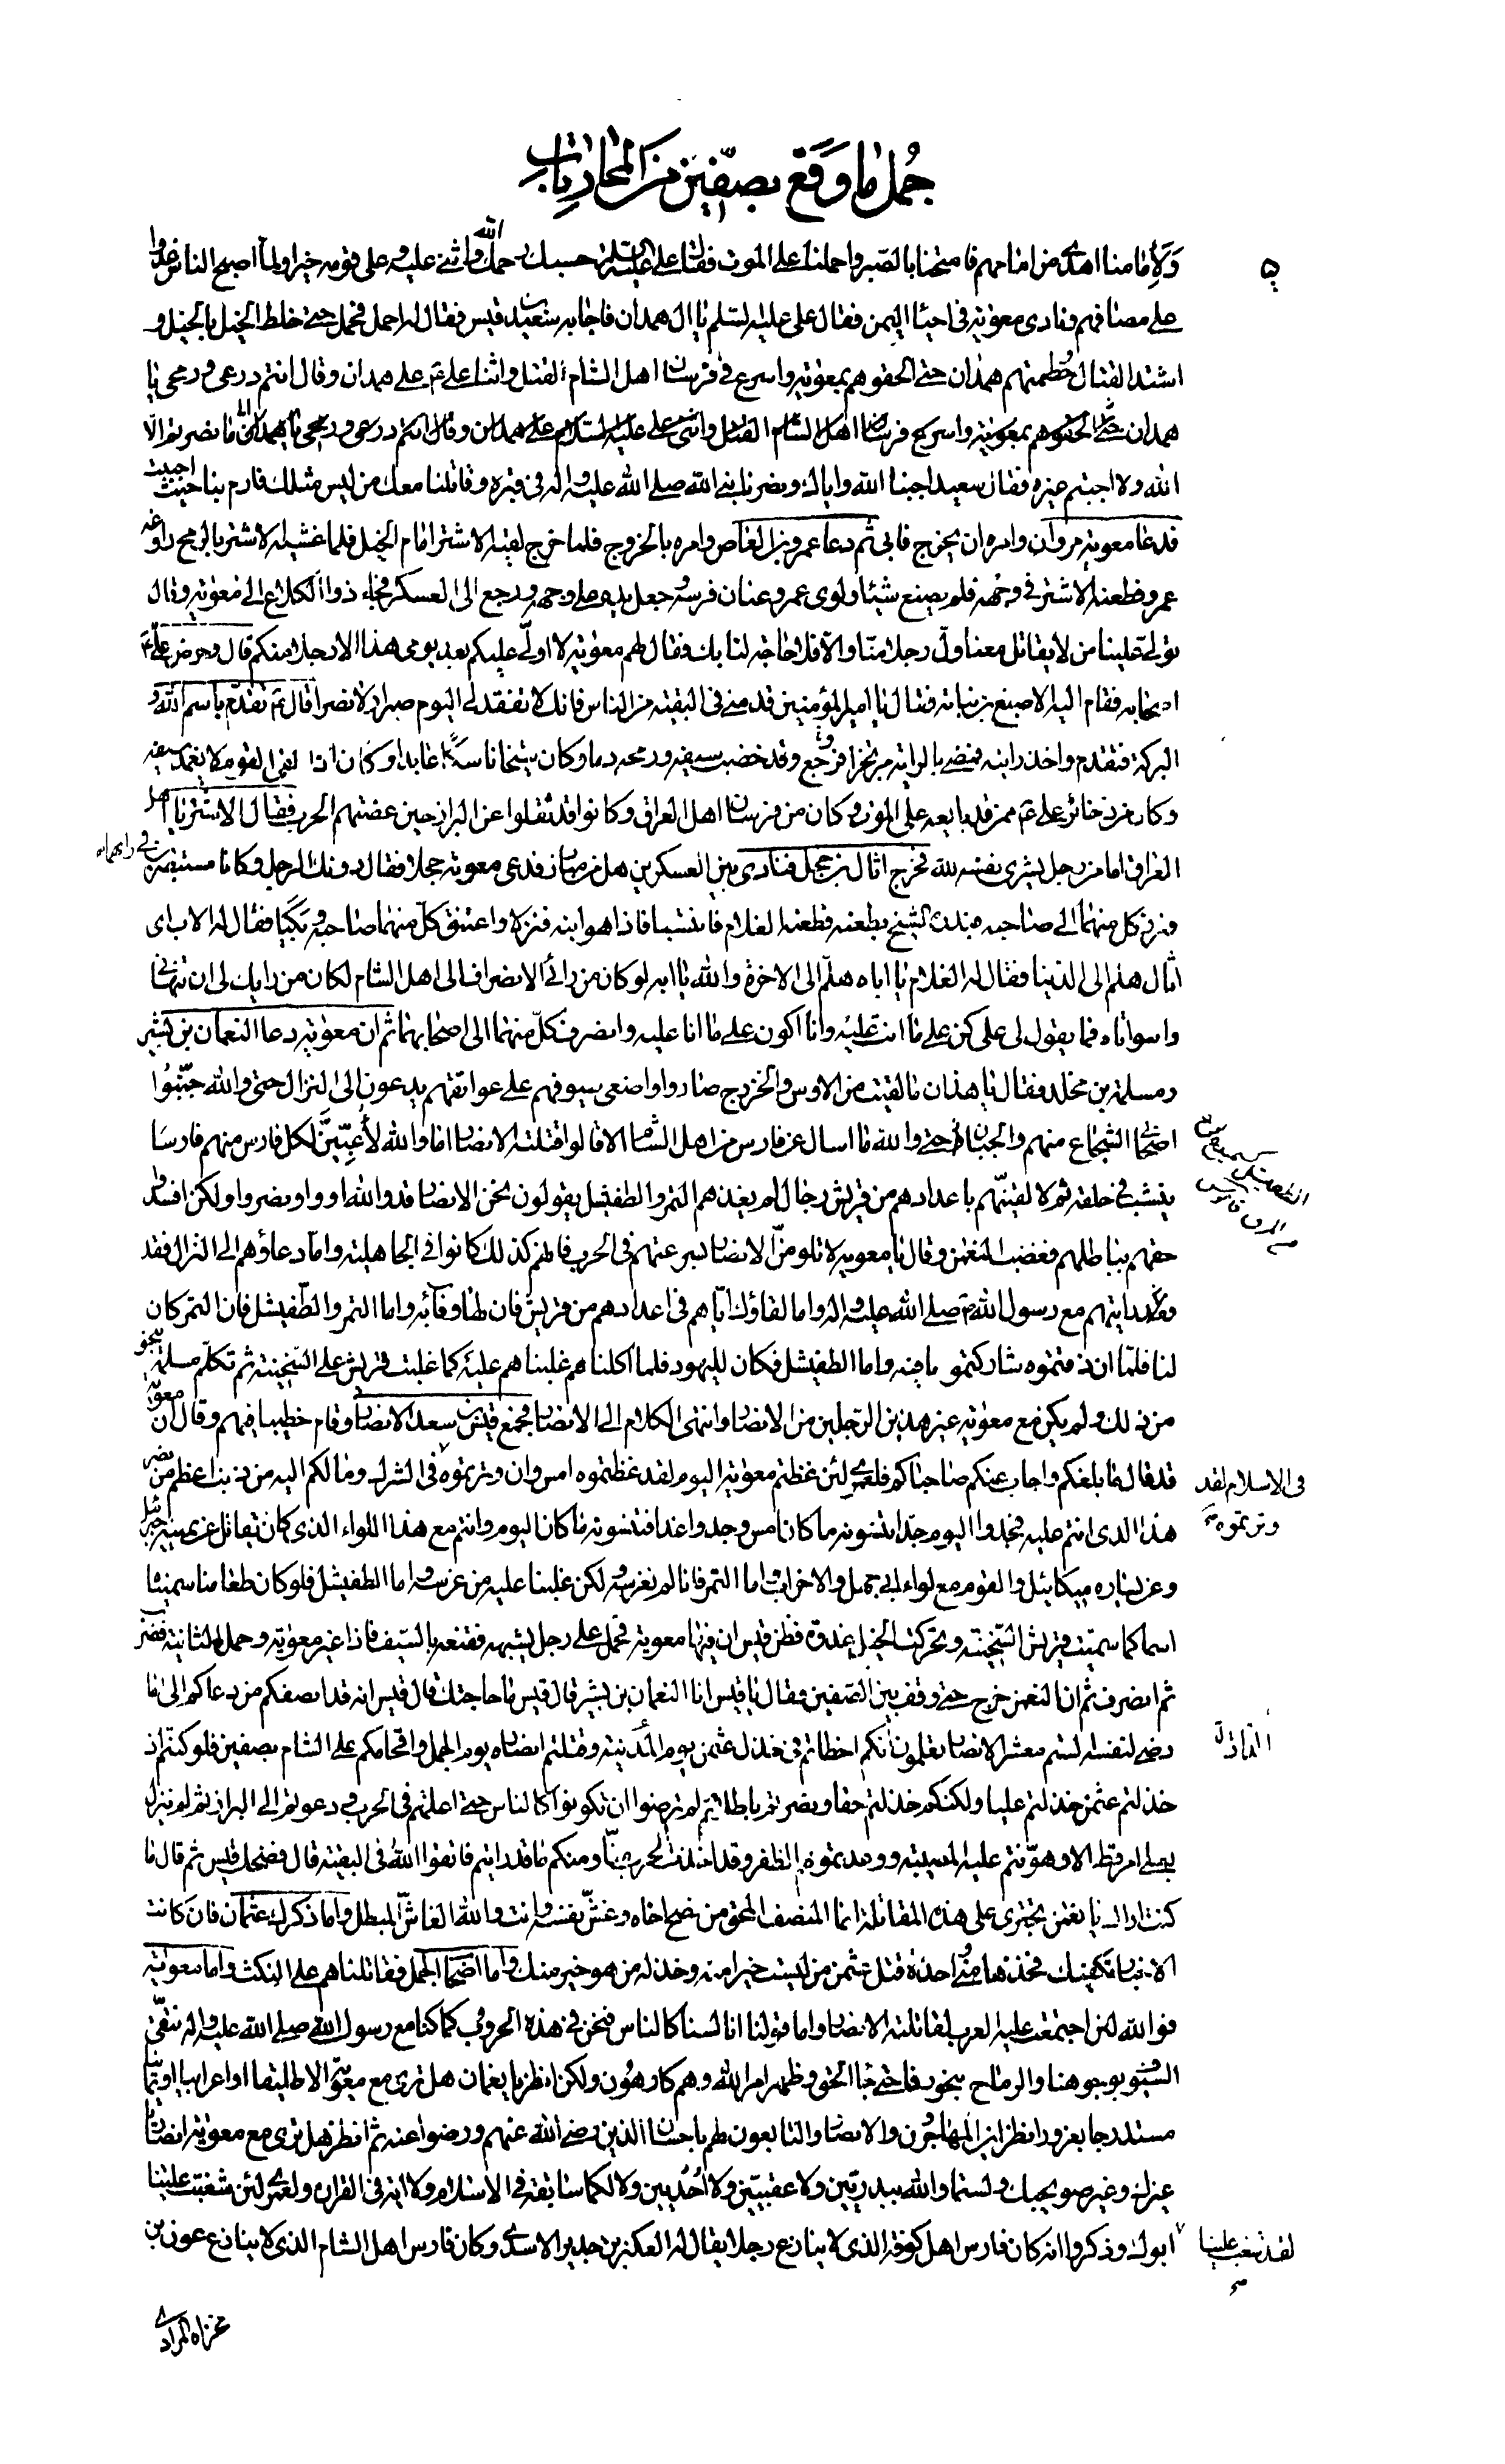 جُمل ما وَقَع بصفّين من المحاربات
ولا إمامنا اهدى من امامهم فامنحنا بالصبر واحملنا على الموت فقال على عليه السلم حسبك رحمك الله واثنى عليه وعلى قومه خيرا ولما اصبح الناس غدوا
على مصافهم ونادى معوية فى احياء اليمن فقال على عليه السلم يا ال همدان فاجابه سعيد بن قيس فقال له احمل فحمل حتى خلط الخيل بالخيل و
اشتد القتال وحطمتهم همدان حتى الحقوهم بمعوية واسرع فى فرسان اهل الشام القتل واثنا على ع على همدان وقال انتم درعى ورمحى يا
همدان حتى الحقوهم بمعوية واسرع فرسان اهل الشام القتل واثنى على عليه السلام على همدان وقال انتم درعى ورمحى يا همدان ما نصرتم الا
الله ولا اجبتم غيره فقال سعيد اجبنا الله واياك ونصرنا نبى الله صلى الله عليه واله فى قبره وقاتلنا معك من ليس مثلك فارم بنا حيث احببت
فدعا معوية مروان وامره ان يخرج فابى ثم دعا عمرو بن العاص وامره بالخروج فلما خرج لقيه الاشتر امام الخيل فلما غشيه الاشتر بالرمح راوغه
عمرو فطعنه الاشتر فى وجهه فلم يصنع شيئا ولوى عمرو عنان فرسه وجعل يده على وجهه ورجع الى العسكر فجاء ذو الكلاع الى معوية وقال
تولى علينا من لا يقاتل معنا ولّ رجلا منّا والا فلا حاجة لنا بك فقال لهم معوية لا اولّى عليكم بعد يومى هذا الا رجلا منكم قال وحرض على ع
اصحابه فقام اليه الاصبغ بن نباتة فقال يا امير المؤمنين قدمنى فى البقية من الناس فانك لا تفقد لى اليوم صبرا ولا نصرا قال ع تقدّم باسم الله و
البركة فتقدم واخذ رايته فمضى بالراية مرتجزا فرجع وقد خضب سيفه ورمحه دما وكان شيخا ناسكا عابدا وكان اذا لقى القوم لا يغمد سيفه
وكان من ذخائر على ع ممن قد بايعه على الموت وكان من فرسان اهل العراق وكانوا قد ثقلوا عن البراز حين عضتهم الحرب فقال الاشتر يا اهل
العراق اما من رجل يشرى نفسه لله فخرج اثال بن حجل فنادى بين العسكرين هل من مبارز فدعى معوية حجلا فقال دونك الرجل وكانا مستبصرين فى رايهما
فبرز كل منهما الى صاحبه فبدره الشيخ بطعنة فطعنه الغلام فانتسبا فاذا هو ابنه فنزلا واعتنق كلّ منهما صاحبه وبكيا فقال له الاب اى
اثال هلم الى الدنيا فقال له الغلام يا اباه هلم الى الاخرة والله يا ابه لو كان من رائى الانصراف الى اهل الشام لكان من رايك لى ان تنهانى
واسواتاه فما يقول لى على كن على ما انت عليه وانا اكون على ما انا عليه وانصرف كلّ منهما الى اصحابهما ثم ان معوية دعا النعمان بن بشير
ومسلمة بن مخلد فقال يا هذان ما لقيت من الاوس والخزرج صاروا واضعى سيوفهم على عواتقهم يدعون الى النزال حتى والله جبّنوا
اصحابى الشجاع منهم والجبان حتى والله ما اسال عن فارس من اهل الشام الا قالوا قتلته الانصار اما والله لأعبّينّ لكل فارس منهم فارسا
ينشب فى حلقه ثم لالقينّهم باعدادهم من قريش رجال لم يغذهم التمر والطفيشل يقولون نحن الانصار قد والله اووا ونصروا ولكن افسدوا
حقهم بباطلهم فغضب النعمن وقال يا معوية لا تلومن الانصار بسرعتهم فى الحرب فانهم كذلك كانوا فى الجاهلية واما دعاؤهم الى النزال فقد
رايتهم مع رسول الله صلى الله عليه واله واما لقاؤك اياهم فى اعدادهم من قريش واما التمر والطفيشل فان التمر كان
لنا فلما ان ذقتموه شاركتمونا فيه واما الطفيشل فكان لليهود فلما اكلناهم غلبناهم عليه كما غلبت قريش على السخينة ثم تكلّم مسلمة بنحو
من ذلك ولم يكن مع معوية غير هذين الرجلين من الانصار وانتهى الكلام الى الانصار فجمع قيس بن سعد الانصار وقام خطيبا فيهم وقال ان معوية
قد قال ما بلغكم واجاب عنكم صاحباكم فلعمرى لئن غظتم معوية اليوم لقد غظتموه امس وان وترتموه فى الشرك وما لكم اليه من ذنب اعظم من نصر
فى الاسلام لقد
وترتموه
هذا الدى انتم عليه فجدوا اليوم جدا تنسونه ما كان امس وجدوا غدا فتنسونه ما كان اليوم وانتم مع هذا اللواء الذى كان يقاتل عن يمينه جبرئيل
وعن يساره ميكائيل والقوم مع لواء ابى جهل والاحزاب واما التمر فانا لم نغرسه لكن غلبنا عليه من غرسه واما الطفيشل فلو كان طعامنا سمينا
اسما كما سميت قريش السخينة وتحركت الخيل غدوة فظن قيس ان فيها معوية فحمل على رجل يشبهه فقنعه بالسيف فاذا غير معوية وحمل الثانية فضرب
ثم انصرف ثم ان النعمن خرج حتى وقف بين الصفين وقال يا قيس انا النعمان بن بشير قال قيس ما حاجتك قال قيس انه قد انصفكم من دعاكم الى ما
رضى لنفسه لستم معشر الانصار تعلمون انكم اخطاتم فى خذل عثمن يوم الدار وقتلتم انصاره يوم الجمل واقحامكم على الشام بصفين فلو كنتم اذ
خذلتم عثمن خذلتم عليا ولكنكم خذلتم حقا ونصرتم باطلا ثم لم ترضوا ان تكونوا كالناس حتى اعلمتم فى الحرب ودعوتم الى البراز ثم لم ينزل
بعلى امر قط الا وهوّنتم عليه المصيبة ووعدتموه الظفر وقد اخذت الحرب منّا ومنكم ما قد رايتم فاتقوا الله فى البقية قال فضحك قيس ثم قال ما
كنت اراك يا نعمن تجترى على هذه المقالة انما المنصف المحق من نصح اخاه وغشّ نفسه وانت والله الغاشّ المبطل واما ذكرك عثمان فان كانت
الاخبار تكفيك فخذها منى واحدة قتل عثمن من لست خيرا منه وخذله من هو خير منك واما اصحاب الجمل فقاتلناهم على النكث واما معوية
فوالله لئن اجتمعت عليه العرب لقاتلته الانصار واما قولنا انا لسنا كالناس فنحن فى هذه الحروب كما كنا مع رسول الله صلى الله عليه واله نتقى
السيوف بوجوهنا والرماح بنحورنا حتى جاء الحق وظهر امر الله وهم كارهون ولكن انظر يا نعمان هل ترى مع معوية الا طليقا او اعرابيا او يمانيا
مستدرجا بغرور انظر اين المهاجرون والانصار والتابعون لهم باحسان الذين رضى الله عنهم ورضوا عنه ثم انظر هل ترى مع معوية انصاريا
غيرك وغير صويحبك ولستما والله ببدريين ولا عقبيين ولا أحديين ولا لكما سابقة فى الاسلام ولا اية فى القران ولعمرى لئن شغبت علينا
ابوك وذكروا انه كان فارس اهل كوفة الذى لا ينازع رجلا يقال له العكبر بن جدير الاسدى وكان فارس اهل الشام الذى لا ينازع عوف بن
لقد شغب علينا
مجزاة المرادى